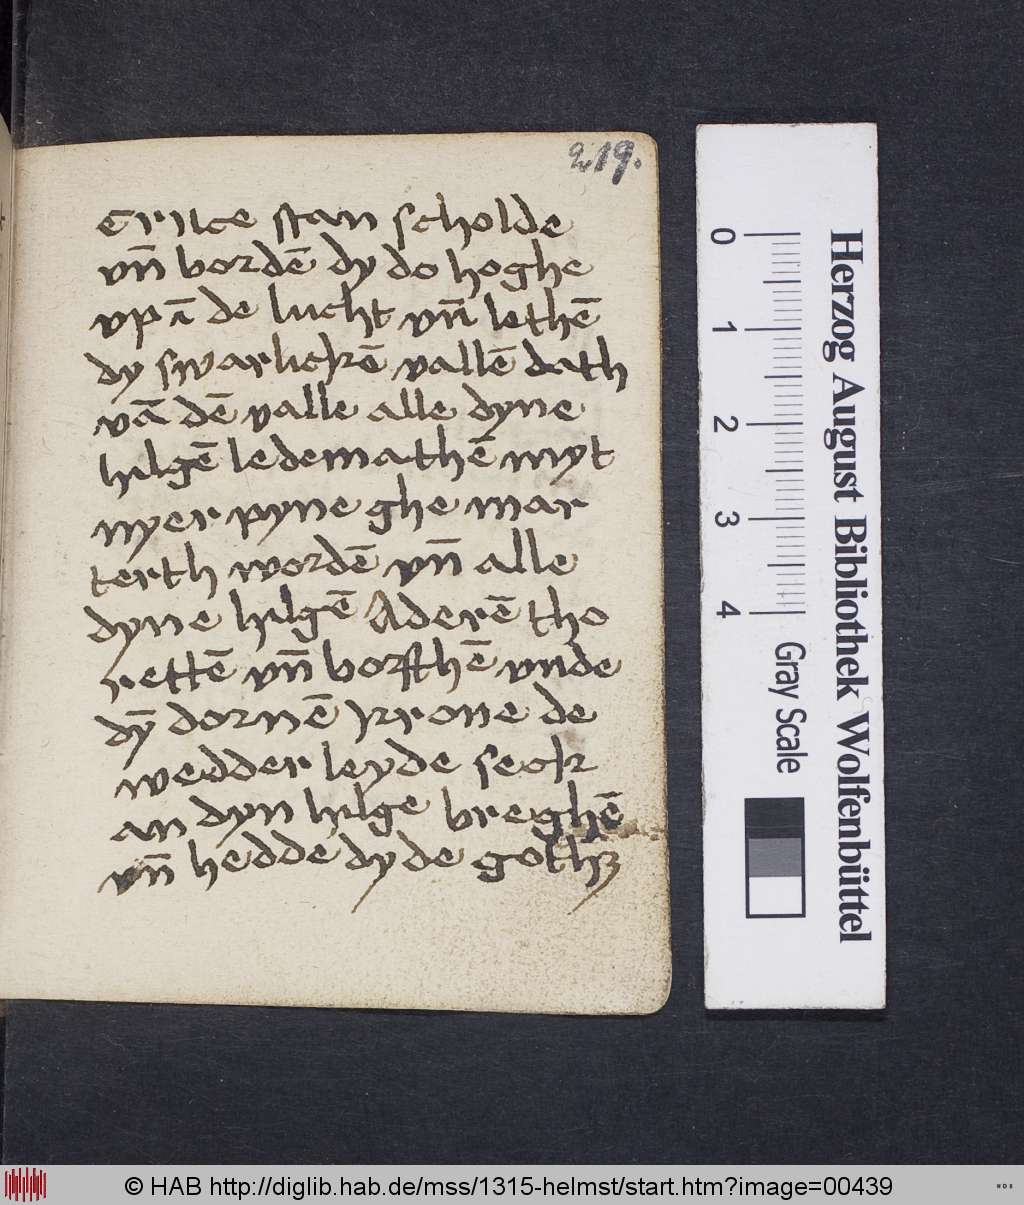 219.
cruce stan scholde
vn̄ bordē dy do hoghe
vp ī de lucht vn̄ lethē
dy swarlickē vallē dath
vā dē valle alle dyne
hilgē ledemathē myt
nyer pyne ghe mar
terth wordē vn̄ alle
dyne hilgē Aderē tho
rettē vn̄ borsthē vnde
dȳ dornē krone de
wedder leyde seck
an dyn hilge breghē
vn̄ hedde dy de goth
0 1 2 3 4
Gray Scale
Herzog August Bibliothek Wolfenbüttel
© HAB http://diglib.hab.de/mss/1315-helmst/start.htm?image=00439